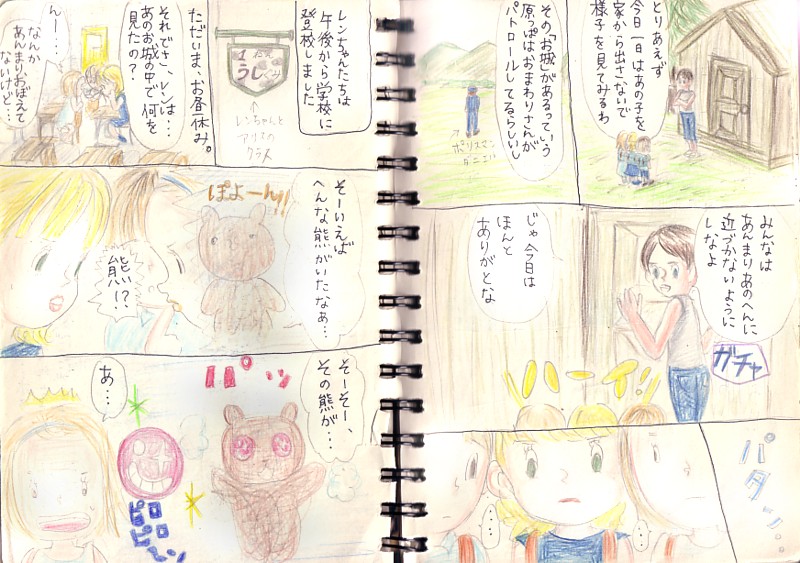 とりあえず
今日一日はあの子を
家から出さないで
様子を見てみるわ
その「お城」があるっていう
原っぱはおまわりさんが
パトロールしてるらしいし
ポリスマン
みんなは
あんまりあのへんに
近づかないように
しなよ
ガチャ
じゃ今日は
ほんと
ありがとな
ハーイ!!
パタン…
…
…
レンちゃんたちは
午後から学校に
登校しました
1
うし
レンちゃんと
アリスの
クラス
ただいま、お昼休み。
それでさ、レンは…
あのお城の中で何を
見たの?
んー…
なんか
あんまりおぼえて
ないけど…
そーいえば
へんな熊がいたなぁ…
ぽよーん!!
熊!?
そーそー、
その熊が…
パッ
あ…
ピロピローン